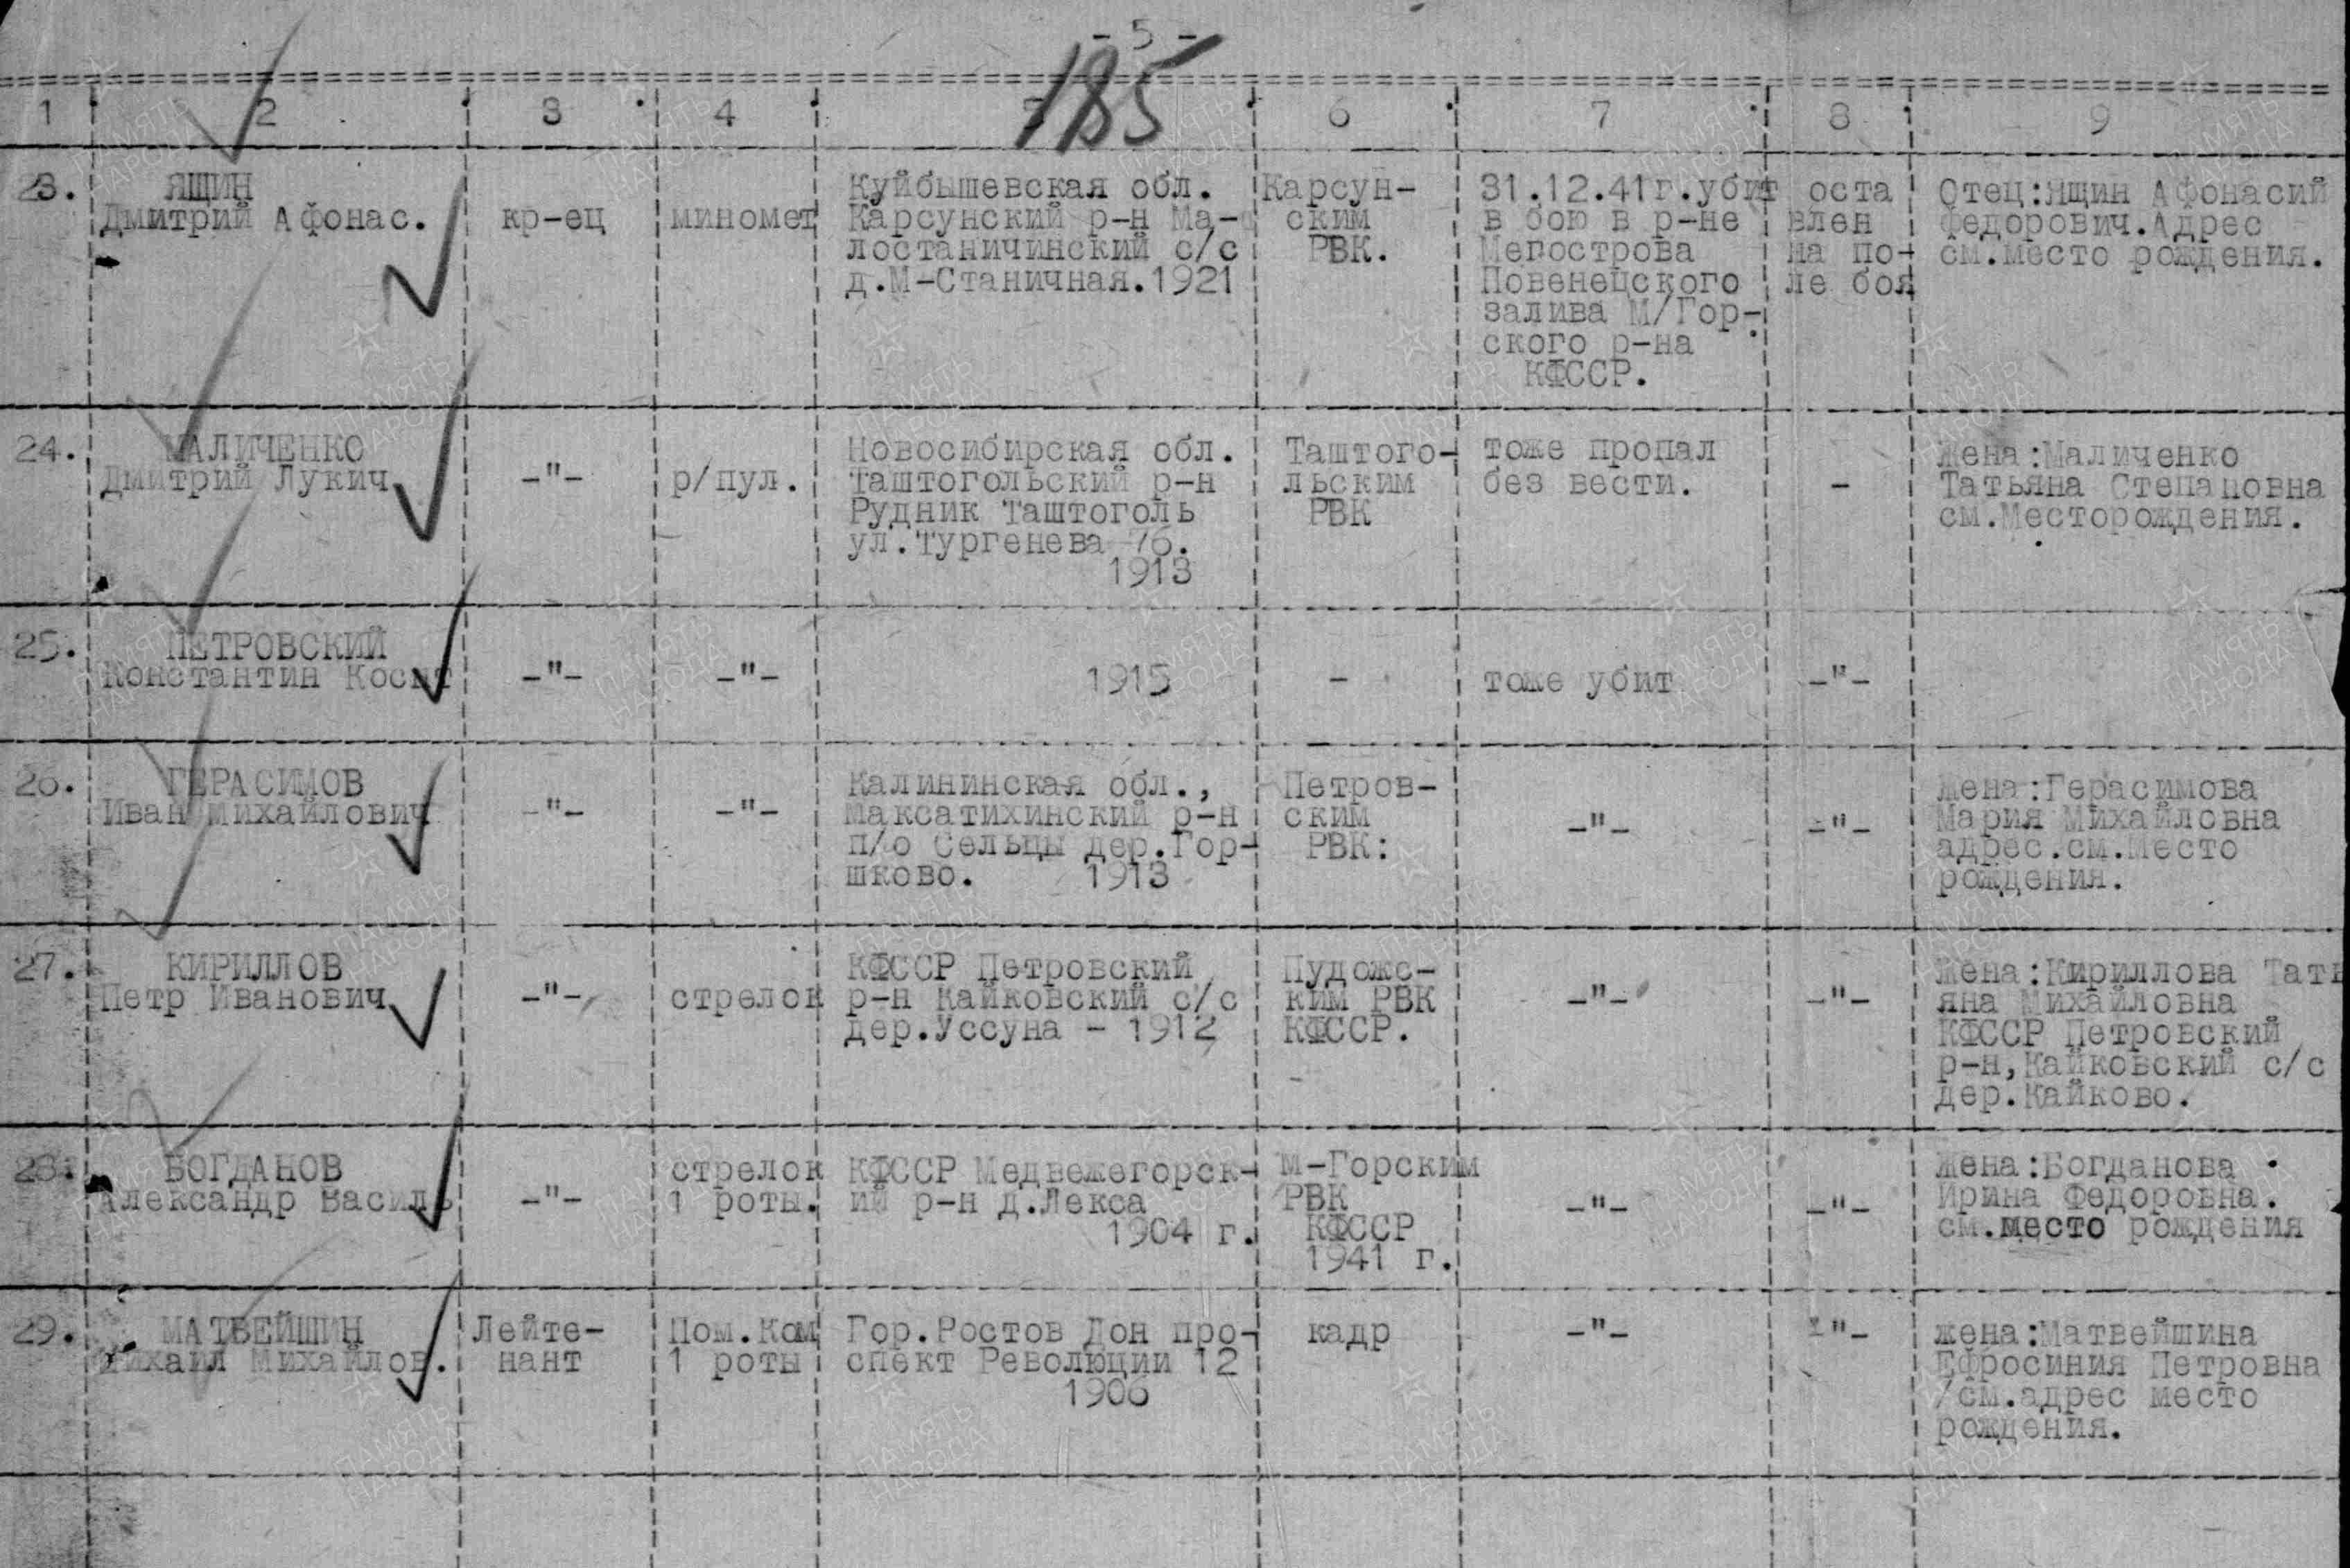 - 5 -
185
1 2 3 4 5 6 7 8 9
23. ЯЩИН
Дмитрий Афонас.
кр-ец
миномет
Куйбышевская обл.
Карсунский р-н Ма-
лостаничинский с/с
д.М-Станичная.1921
Карсун-
ским
РВК.
31.12.41г.убит
в бою в р-не
Мегострова
Повенецского
залива М/Гор-
ского р-на
КФССР.
оста
влен
на по-
ле боя
Отец:Ящин Афонасий
Федорович.Адрес
см.место рождения.
24. МАЛИЧЕНКО
Дмитрий Лукич
-"-
р/пул.
Новосибирская обл.
Таштогольский р-н
Рудник Таштоголь
ул.Тургенева 76.
1913
Таштого-
льским
РВК
тоже пропал
без вести.
-
Жена:Маличенко
Татьяна Степановна
см.Месторождения.
25. ПЕТРОВСКИЙ
Константин Коснт
-"-
-"-
1915
-
тоже убит
-"-
26. ГЕРАСИМОВ
Иван Михайлович
-"-
-"-
Калининская обл.,
Максатихинский р-н
п/о Сельцы дер.Гор-
шково. 1913
Петров-
ским
РВК:
-"-
-"-
Жена:Герасимова
Мария Михайловна
адрес.см.Место
рождения.
27. КИРИЛЛОВ
Петр Иванович
-"-
стрелок
КФССР Петровский
р-н Кайковский с/с
дер.Уссуна - 1912
Пудожс-
ким РВК
КФССР.
-"-
-"-
Жена:Кириллова Тать
яна Михайловна
КФССР Петровский
р-н,Кайковский с/с
дер.Кайково.
28. БОГДАНОВ
Александр Василь
-"-
стрелок
1 роты.
КФССР Медвежегорск-
ий р-н д.Лекса
1904 г.
М-Горским
РВК
КФССР
1941 г.
-"-
-"-
Жена:Богданова
Ирина Федоровна.
см.место рождения
29. МАТВЕЙШИН
Михаил Михайлов.
Лейте-
нант
Пом.Ком
1 роты
Гор.Ростов Дон про-
спект Революции 12
1906
кадр
-"-
-"-
жена:Матвейшина
Ефросиния Петровна
/см.адрес место
рождения.